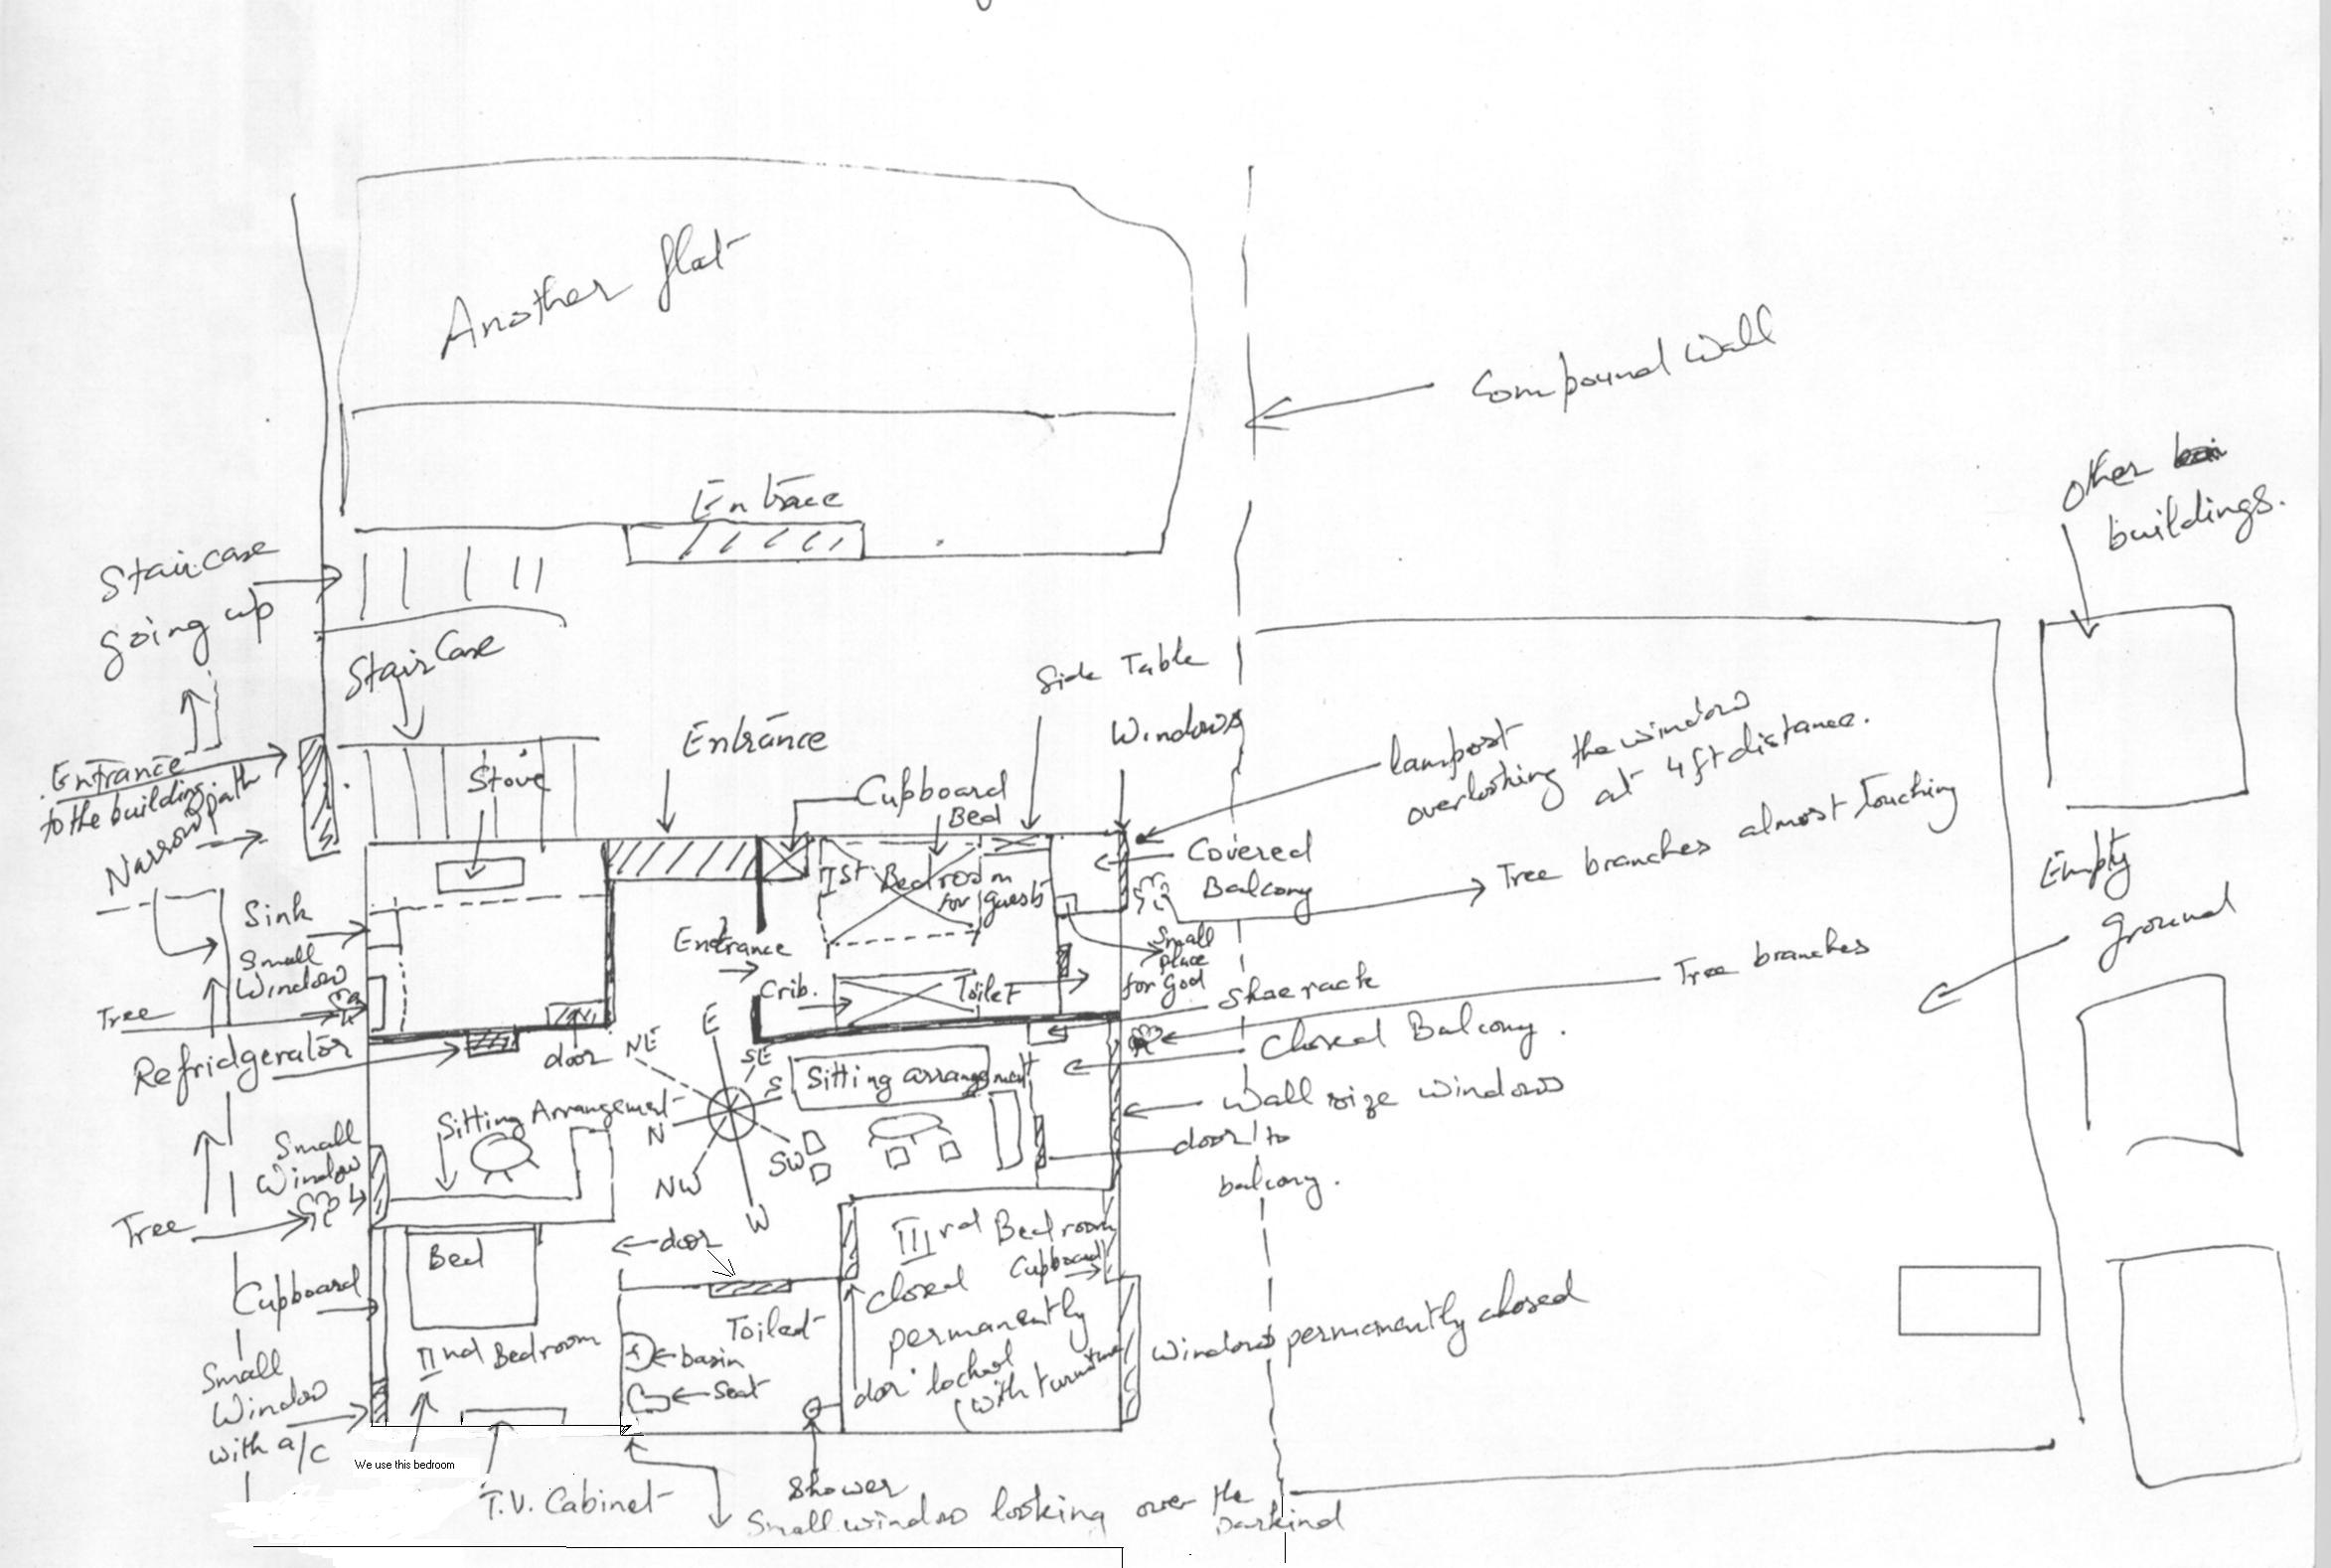 Another flat
Compound Wall
Entrace
other
buildings.
Staircase
going up
StairCase
Side Table
Windows
Entrance
Stove
Cupboard
Bed
lampost
overlooking the window
at 4ft distance.
Entrance
to the building
Narrow path
Covered
Balcony
Tree branches almost touching
Empty
ground
Ist Bedroom
for guests
Sink
Small
Window
Entrance
Small
place
for God
Tree branches
Crib.
Toilet
Shoe rack
Tree
Refridgerator
door
Closed Balcony.
NE
E
SE
S
SW
W
NW
N
Sitting arrangement
Wall size windows
Sitting Arrangement
door to
balcony.
Small
Window
Tree
door
Bed
IIIrd Bedroom
Cupboard
closed
permanently
door locked
(with furniture
Cupboard
Toilet
IInd Bedroom
basin
Seat
Windows permanently closed
Small
Window
with a/c
We use this bedroom
T.V. Cabinet
Shower
Small window looking over the